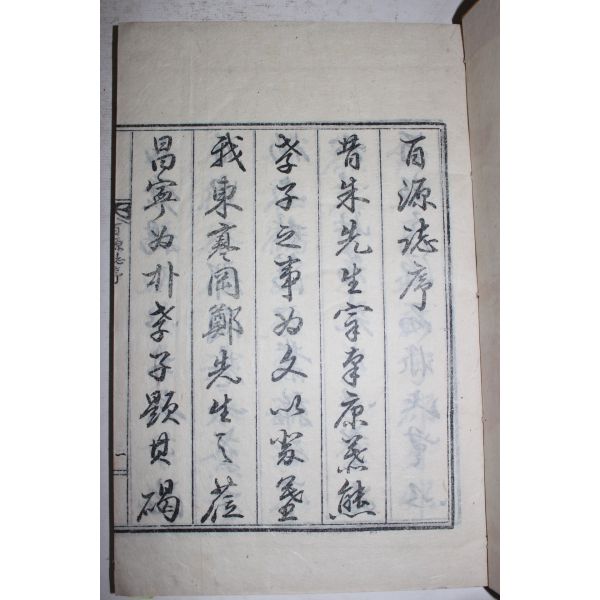 百源誌序
昔朱先生宰南康慕熊
孝子之事為文以祭墓
我東寒岡鄭先生之莅
昌寧為朴孝子題其碣
百源誌序
一